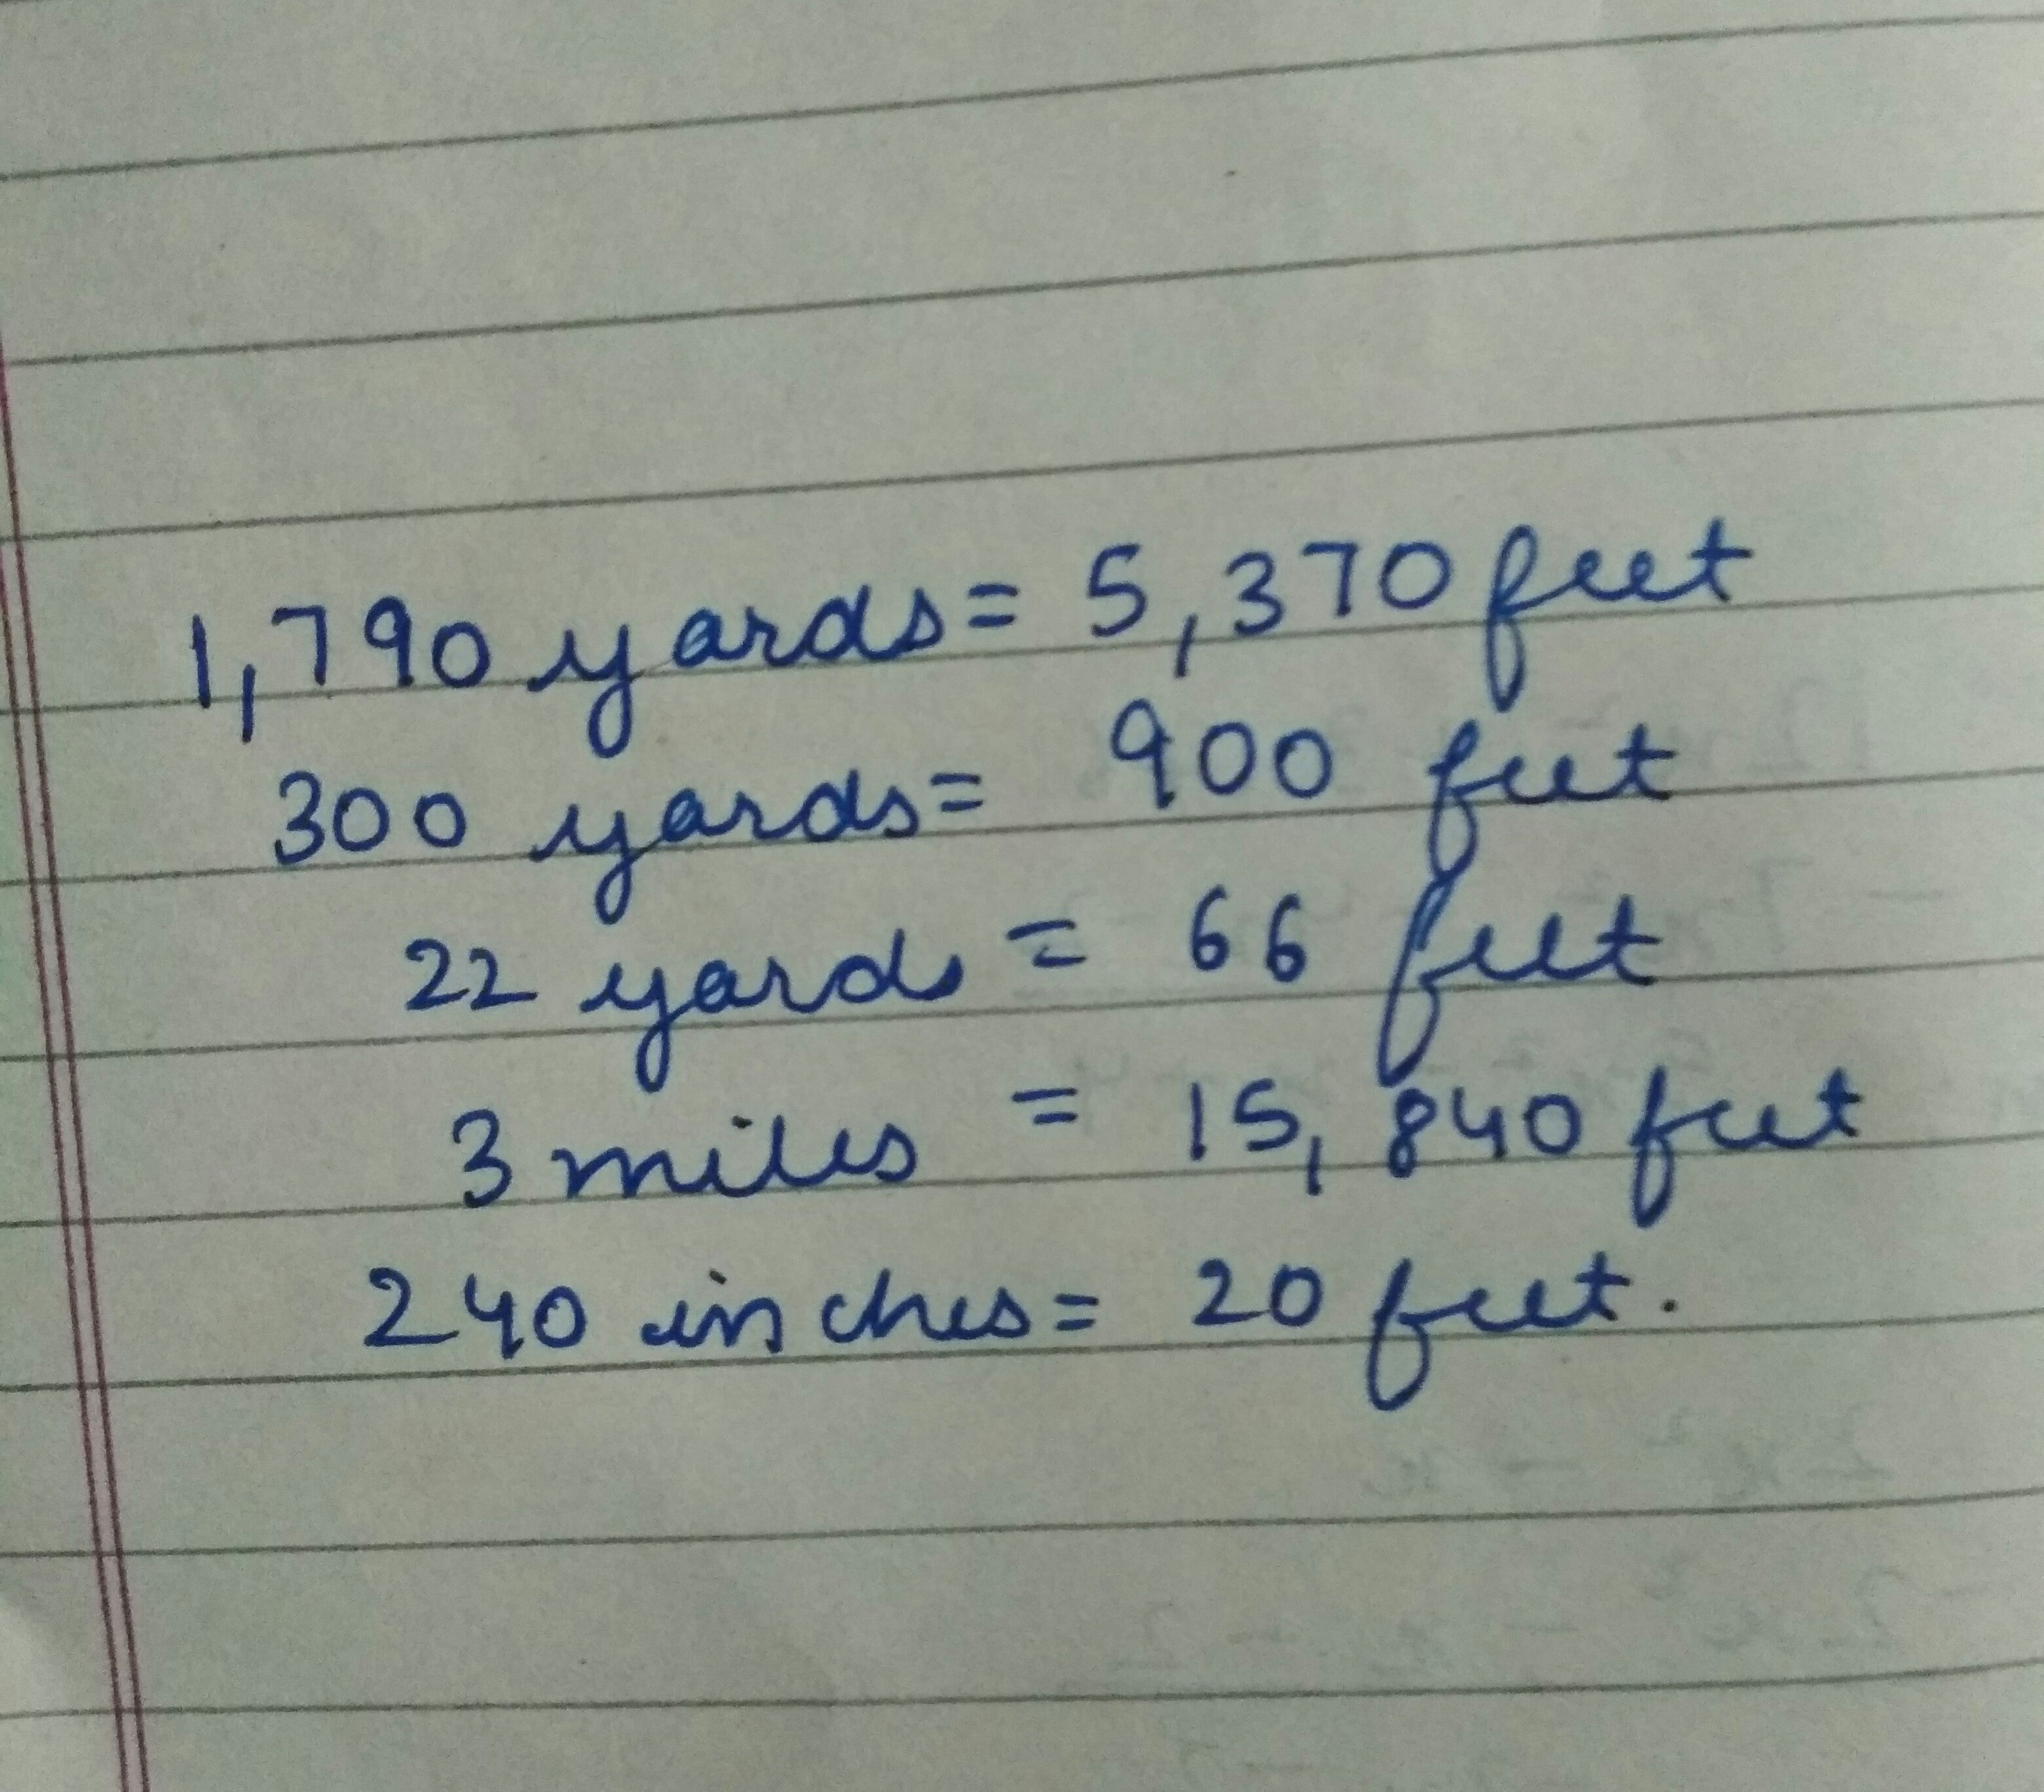 1,790 yards = 5,370 feet
300 yards = 900 feet
22 yards = 66 feet
3 miles = 15,840 feet
240 inches = 20 feet.